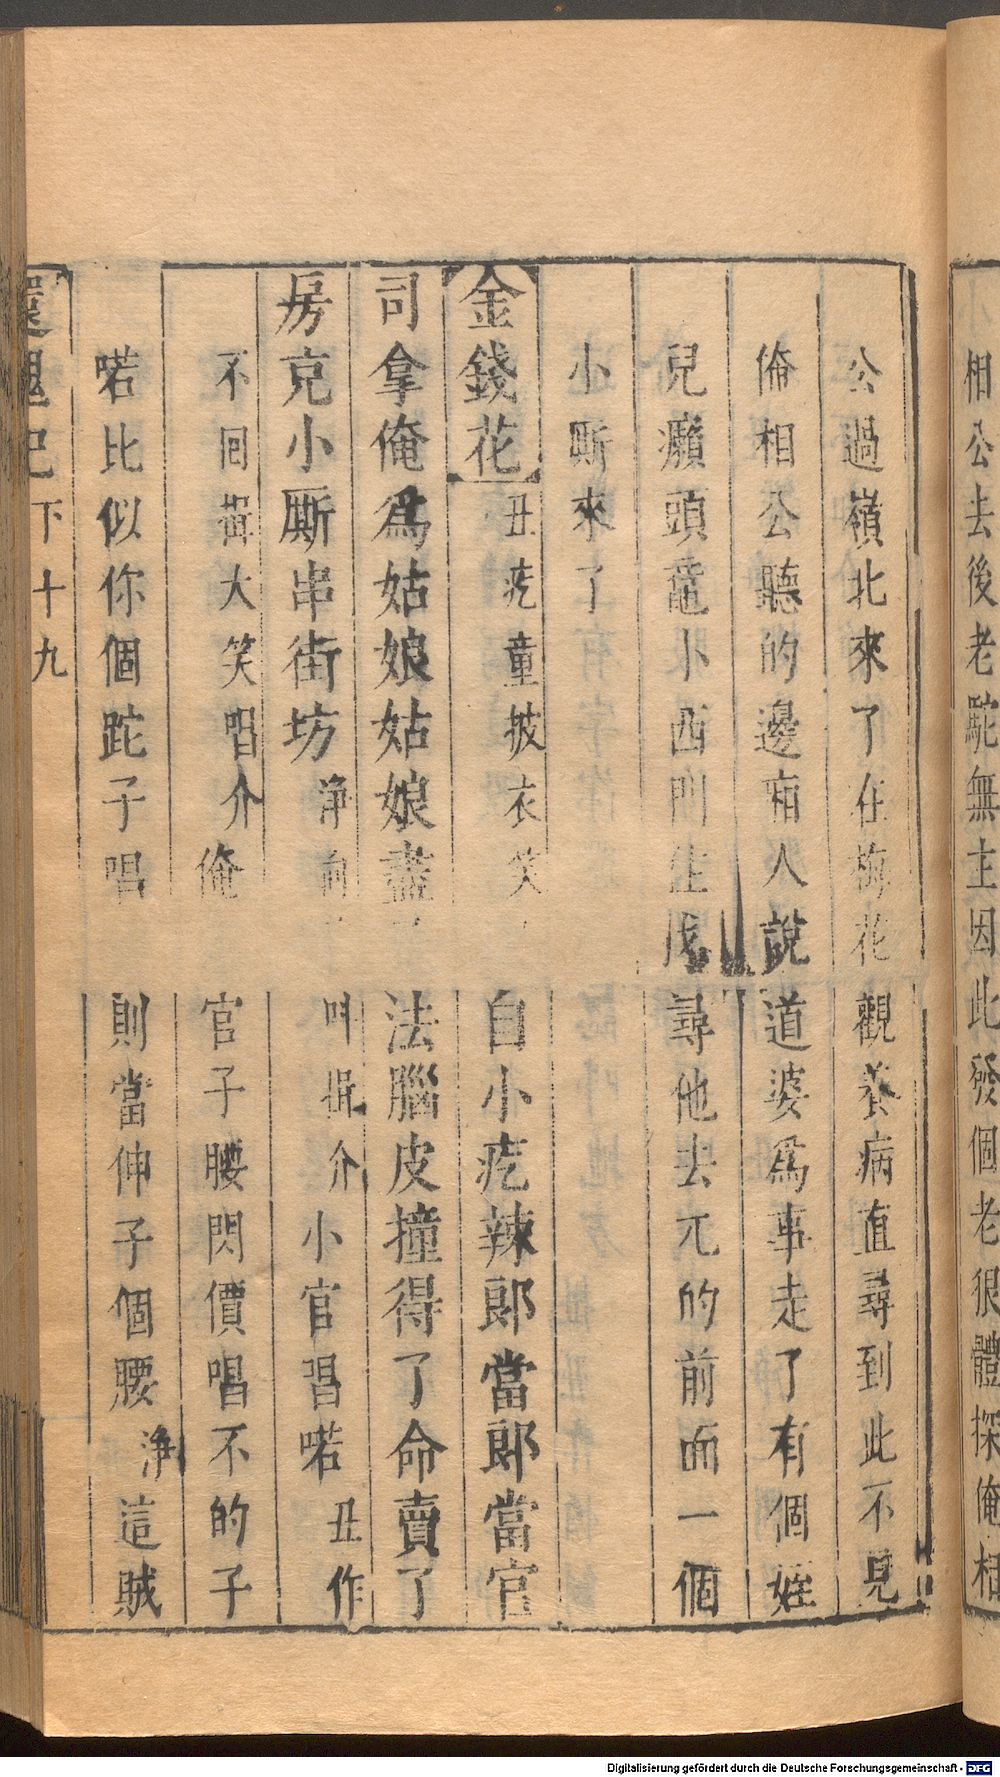 相公去後老駝無主因此發個老狠體探俺相
公過嶺北來了在梅花觀養病直尋到此不見
俺相公聽的邊廂人說道婆爲事走了有個姪
兒癩頭黿小西門住找尋他去兀的前面一個
小厮來了
金錢花丑疙童披衣笑自小疙辣郎當郎當官
司拿俺爲姑娘姑娘盡法腦皮撞得了命賣了
房充小厮串街坊淨叫揖介小官唱喏丑作
不囘揖大笑唱介俺官子腰閃價唱不的子
喏比似你個跎子唱則當伸子個腰淨這賊
還魂記 下 十九
Digitalisierung gefördert durch die Deutsche Forschungsgemeinschaft - DFG